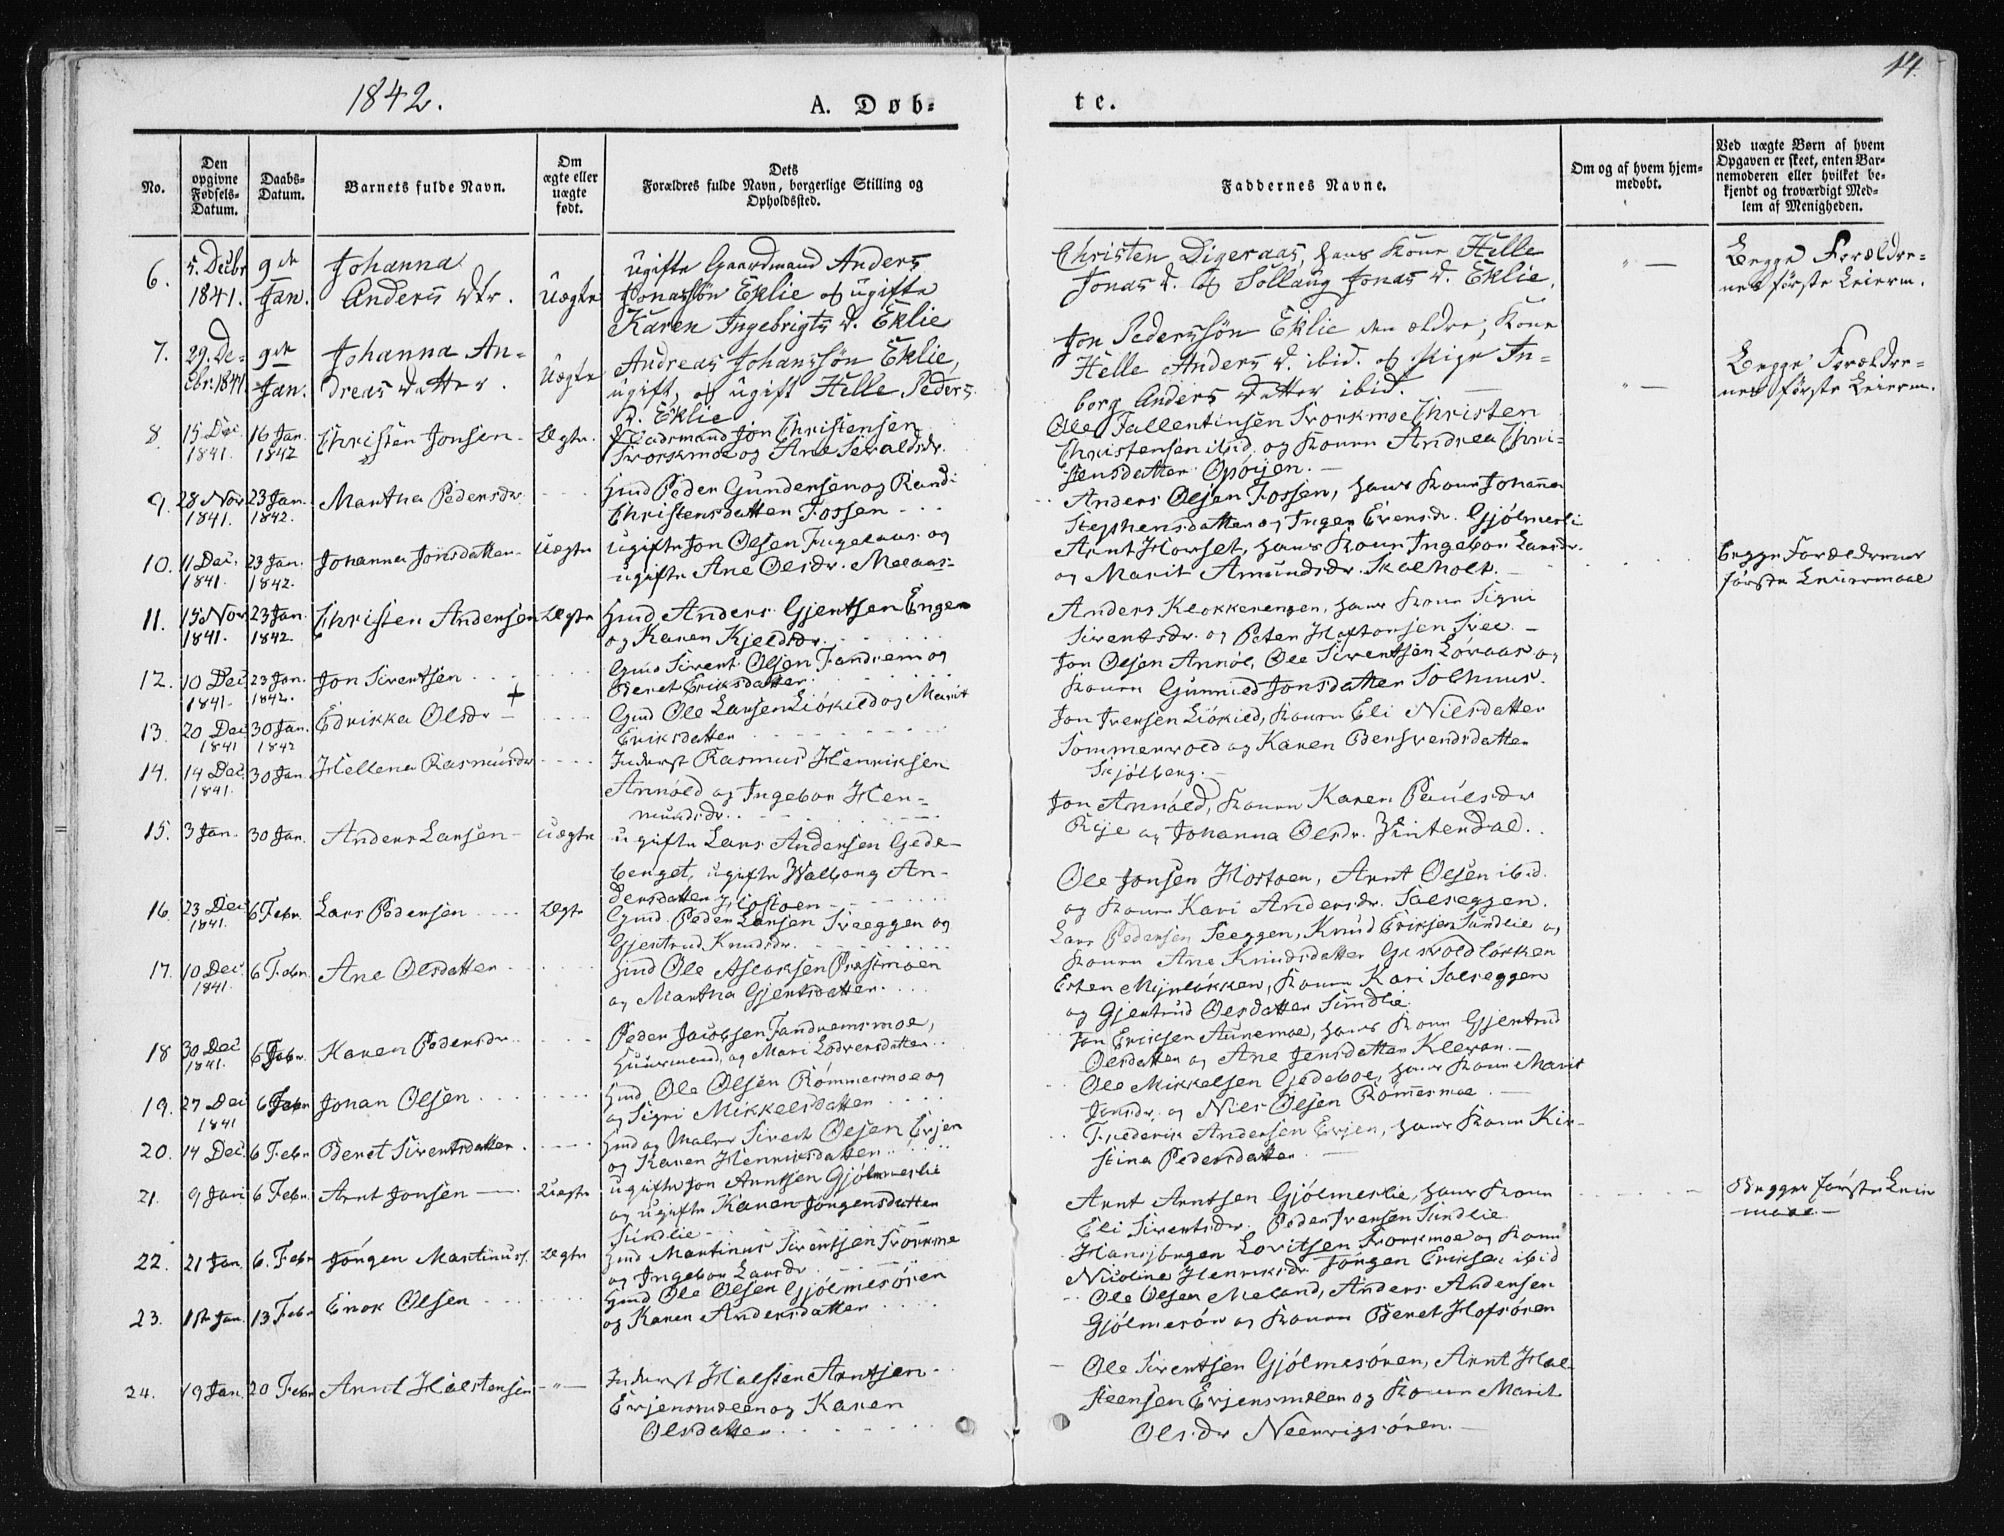 1842.
A. Døb-
te.
14.
No.
Den opgivne Fødsels-Datum.
Daabs-Datum.
Barnets fulde Navn.
Om ægte eller uægte født.
Dets Forældres fulde Navn, borgerlige Stilling og Opholdssted.
Faddernes Navne.
Om og af hvem hjem-medobt.
Ved uægte Børn af hvem Opgaven er skeet, enten Bar-nemoderen eller hvilket be-kjendt og troværdigt Med-lem af Menigheden.
6. 5. Decbr 1841. 9de Jan. Johanna Anders Dtr. Uægte
ugifte Gaardmand Anders
Jonassøn Eklie og ugifte
Karen Ingebrigts D. Eklie
Christen Digeraas, hans Kone Helle
Jonas D. og Sollaug Jonas D. Eklie.
Begge Forældre-
nes første Leierm.
7. 29. De-cbr. 1841 9de Jan. Johanna An-dreas Datter. Uægte
Andreas Johanssøn Eklie,
ugift, og ugift Helle Peders
D. Eklie
Jon Pederssøn Eklie den ældre, Kone
Helle Anders D. ibid. og Pige In-
borg Anders Datter ibid.
Begge Forældre-
nes første Leierm.
8. 15 Dec 1841. 16 Jan. 1842 Christen Jonsen Ægte.
Gaardmand Jon Christensen
Svorkmoe og Ane Sivaldsdr.
Ole Fallentinsen Svorkmoe Christen
Christensen ibid. og Konen Andrea Chri-
stensdatter Opøyen.
9. 28 Nov 1841. 23 Jan. 1842. Martha Pedersdr
Hmd Peder Gundersen og Randi
Christensdatter Fossen
Anders Olsen Fossen, hans Kone Johanna
Stephensdatter og Inger Evensdr. Gjølmesli
10. 11 Dec. 1841. 23 Jan. 1842. Johanna Jonsdatter Uægte
ugifte Jon Olsen Ingelaas og
ugifte Ane Olsdr. Melaas
Arnt Horset, hans Kone Ingebor Larsdr.
og Marit Amundsdr. Skalholt.
begge Forældrenes
første Leiermaal
11. 15 Nov 1841. 23 Jan. 1842. Christen Andersen Ægte
Hmd Anders Gjertsen Engen
og Karen Kjeldsdr.
Anders Klokkerengen, hans Kone Sigri
Siventsdr. og Peter Haftorsen Svee.
12. 10 Dec 1841. 23 Jan. 1842. Jon Siventsen
Gmd Sivent Olsen Fandrem og
Beret Eriksdatter
Jon Olsen Annøl, Ole Siventsen Løraas og
Konen Gunnild Jonsdatter Solhuus.
13. 20 Dec 1841 30 Jan. 1842 Edrikka Olsdr +
Gmd Ole Larsen Liøkild og Marit
Eriksdatter
Jon Iversen Liøkild, Konen Eli Nilsdatter
Sommervold og Karen Bersvendsdatter
Skjølberg.
14. 14 Dec 1841. 30 Jan. Hellena Rasmusdr
Inderst Rasmus Henriksen
Annøld og Ingebor Hen-
mundsdr.
Jon Annøld, Konen Karen Paulsdr
Rije og Johanna Olsdr. Vinterdal.
15. 3 Jan. 30 Jan. Anders Larsen Uægte
ugifte Lars Andersen Gede-
berget, ugifte Walborg An-
dersdatter Hostoen
Ole Jonsen Hostoen, Arnt Olsen ibid.
og Konen Kari Andersdr. Solseggen.
16. 23 Dec 1841. 6 Febr. Lars Pedersen Ægte
Gmd. Peder Larsen Sveeggen og
Gjertrud Knudsdr.
Lars Pedersen Seeggen, Knud Eriksen Sundlie og
Konen Ane Knudsdatter Griskoldløkken
17. 10 Dec. 1841. 6 Febr. Ane Olsdatter
Hmd Ole Aslaksen Prestmoen
og Martha Gjertsdatter.
Esten Myrløkken, Konen Kari Solseggen
og Gjertrud Olsdatter Sundlie.
18 30 Dec 1841. 6 Febr. Karen Pedersdr
Peder Jacobsen Fandremsmoe,
Huusmand, og Mari Lodversdatter
Jon Ericksen Aunemoe, hans Kone Gjertrud
Olsdatter og Ane Jensdatter Klevan.
19. 27 Dec 1841 6 Febr Johan Olsen
Hmd Ole Olsen Rømmermoe og
og Sigri Mikkelsdatter
Ole Mikkelsen Gjedeboe, hans Kone Marit
Jonsdr. og Niels Olsen Rømmesmoe.
20. 14 Dec. 6 Febr Beret Siventsdatter
Hmd og Maler Sivert Olsen Evjen
og Karen Henriksdatter
Frederik Andersen Evjen, hans Kone Kir-
stina Pedersdatter
21. 9 Jan 6 Febr. Arnt Jonsen Uægte
ugifte Jon Arntsen Gjølmeslie
og ugifte Karen Jørgensdatter
Sundlie
Arnt Arntsen Gjølmeslie, hans Kone
Eli Siventsdr. Peder Iversen Sundlie
Begges første Leier
maal
22. 21 Jan. 6. Febr Jørgen Martinuss. Ægte
Hmd Martinus Siventsen Svorkmoe
og Ingebor Larsdr
Hansjørgen Lovitsen Svorkmoe og Kone
Nicoline Henriksdr. Jørgen Eriksen ibid
23. 17 Jan. 13 Febr Enok Olsen
Hmd Ole Olsen Gjølmesøren
og Karen Andersdatter
Ole Olsen Meland, Anders Andersen
Gjølmesør og Konen Beret Hofsøren
24. 19 Jan. 20 Febr Arnt Halstensen
Inderst Halsten Arntsen
Evjensmoeen og Karen
Olsdatter
Ole Siventsen Gjølmesøren, Arnt Hal-
steensen Evjensmoeen og Konen Marit
Olsdr Neervigsøren.